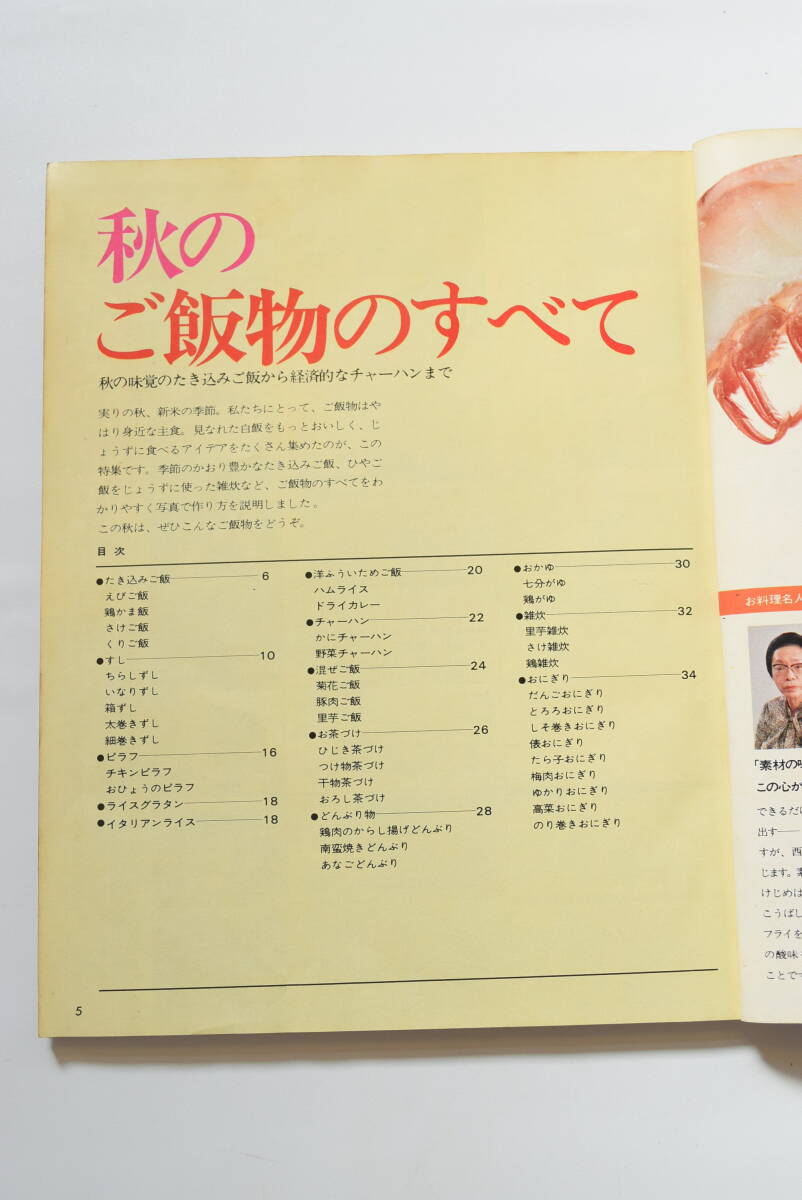 秋の
ご飯物のすべて
秋の味覚のたき込みご飯から経済的なチャーハンまで
実りの秋、新米の季節。私たちにとって、ご飯物はや
はり身近な主食。見なれた白飯をもっとおいしく、じ
ょうずに食べるアイデアをたくさん集めたのが、この
特集です。季節のかおり豊かなたき込みご飯、ひやご
飯をじょうずに使った雑炊など、ご飯物のすべてをわ
かりやすく写真で作り方を説明しました。
この秋は、ぜひこんなご飯物をどうぞ。
目次
●たき込みご飯 6
えびご飯
鶏かま飯
さけご飯
くりご飯
●すし 10
ちらしずし
いなりずし
箱ずし
太巻きずし
細巻きずし
●ピラフ 16
チキンピラフ
おひょうのピラフ
●ライスグラタン 18
●イタリアンライス 18
●洋ふういためご飯 20
ハムライス
ドライカレー
●チャーハン 22
かにチャーハン
野菜チャーハン
●混ぜご飯 24
菊花ご飯
豚肉ご飯
里芋ご飯
●お茶づけ 26
ひじき茶づけ
つけ物茶づけ
干物茶づけ
おろし茶づけ
●どんぶり物 28
鶏肉のからし揚げどんぶり
南蛮焼きどんぶり
あなごどんぶり
●おかゆ 30
七分がゆ
鶏がゆ
●雑炊 32
里芋雑炊
さけ雑炊
鶏雑炊
●おにぎり 34
だんごおにぎり
とろろおにぎり
しそ巻きおにぎり
俵おにぎり
たら子おにぎり
梅肉おにぎり
ゆかりおにぎり
高菜おにぎり
のり巻きおにぎり
5
お料理名人
「素材の
この心か
できるだけ
出す──
すが、西
じます。
けじめは
こうばし
フライを
の酸味
ことで